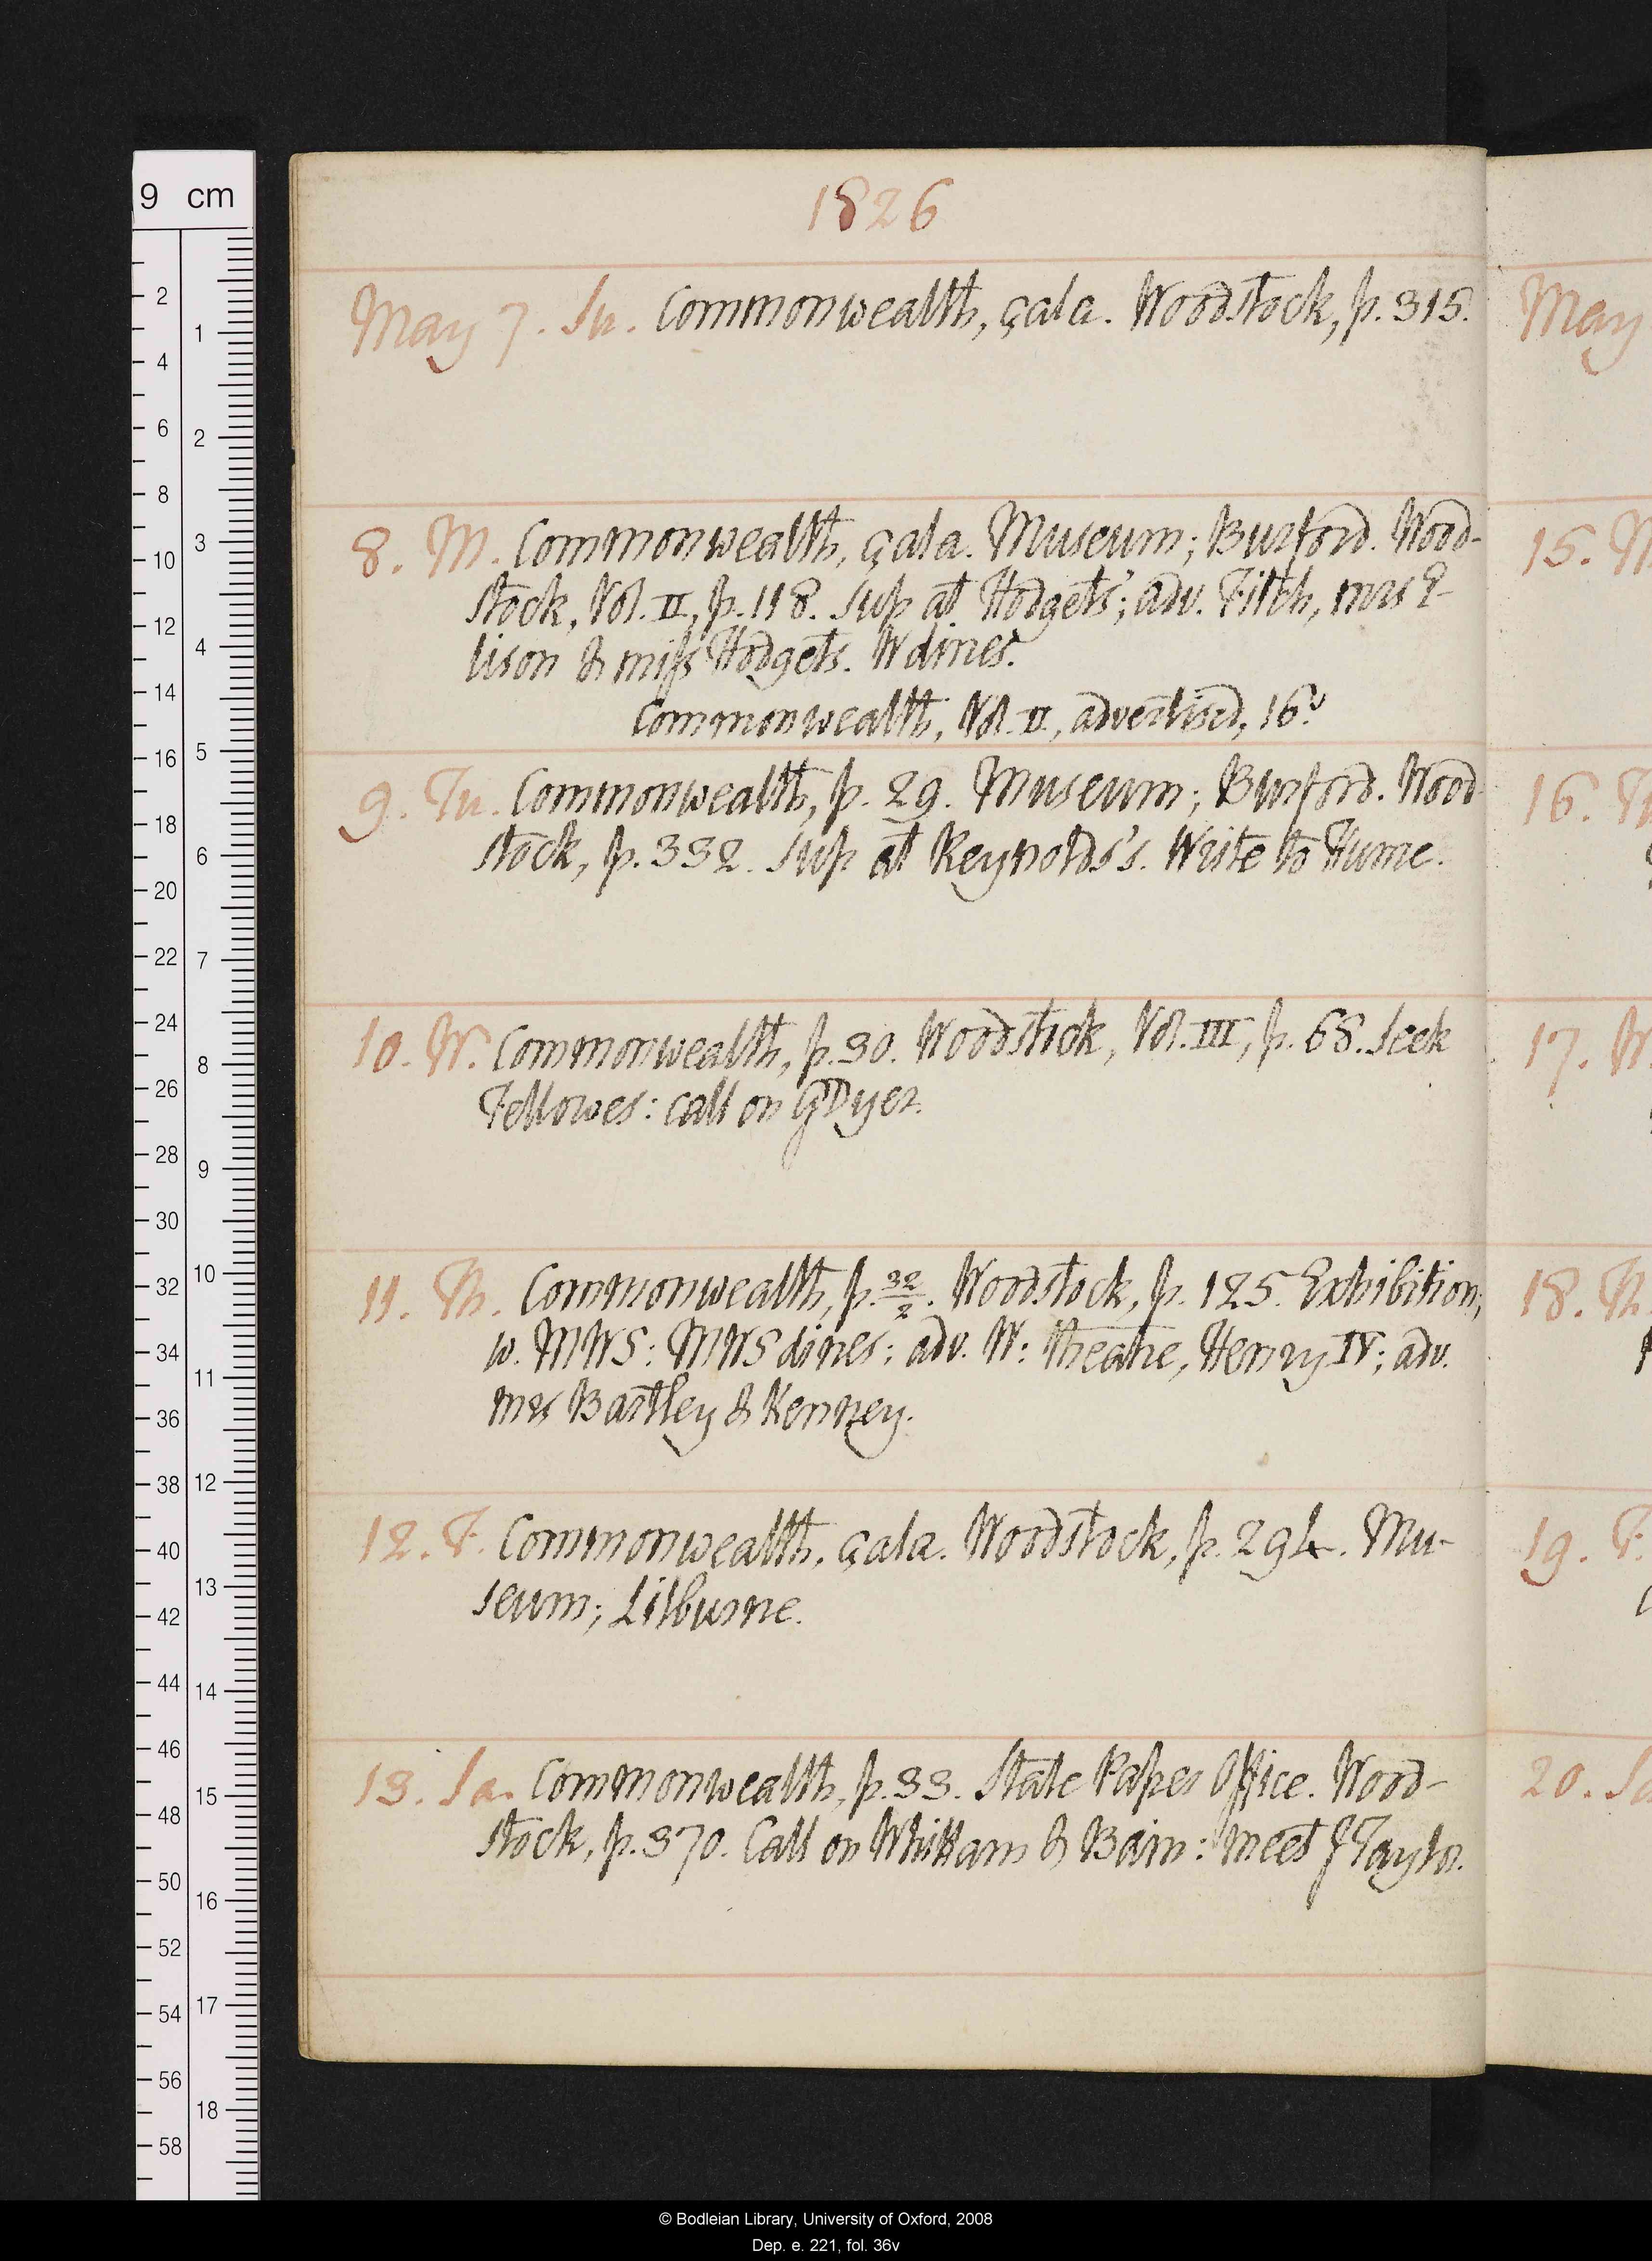 1826
May 7. Su. Commonwealth, çala. Woodstock, p. 315.
8. M. Commonwealth, çala. Museum; Burford. Wood-
stock, Vol. II, p. 118. Sup at Hodgets'; adv. Filth, mrs E-
lison & miss Hodgets. W dines.
Commonwealth, Vol. II, advertised,
9. Tu. Commonwealth, p. 29. Museum; Burford. Wood
stock, p. 332. Sup at Reynolds's. Write to Hume.
10. W. Commonwealth, p. 30. Woodstock, Vol. III, p. 68. Seek
Fellowes: call on G Dyer.
11. Th. Commonwealth, p. 32/2. Woodstock, p. 125. Exhibition;
w. MWS: MWS dines: adv. W: theatre, Henry IV; adv.
mrs Bartley & Kenney.
12. F. Commonwealth, çala. Woodstock, p. 294. Mu-
seum; Lilburne.
13. Sa. Commonwealth, p. 33. State Paper Office. Wood-
stock, p. 370. Call on Whittam & Bain: meet J Taylor.
May
15. M
16. Tu
17. W.
18. Th
19. F.
20. Sa
9 cm
2
4
6
8
10
12
14
16
18
20
22
24
26
28
30
32
34
36
38
40
42
44
46
48
50
52
54
56
58
1
2
3
4
5
6
7
8
9
10
11
12
13
14
15
16
17
18
© Bodleian Library, University of Oxford, 2008
Dep. e. 221, fol. 36v